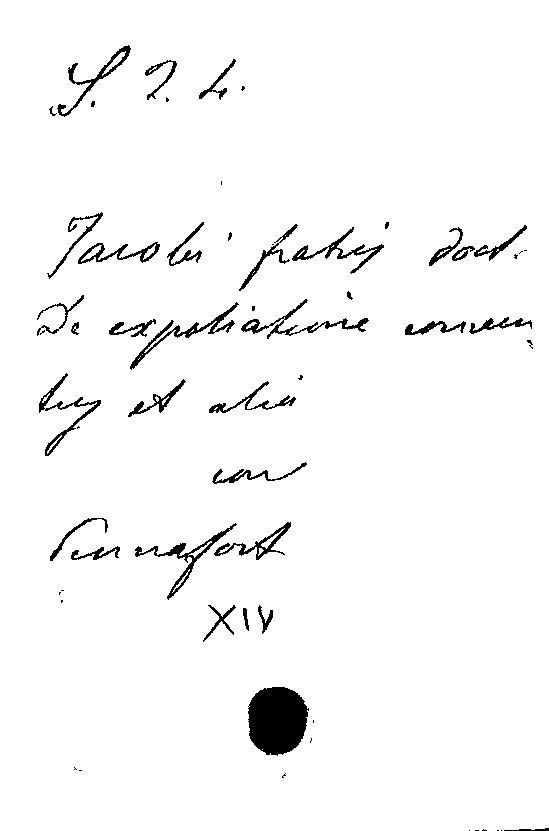 S. 2. 4.
Jacobi fratris doct.
De expoliatione conven
tus et alia
con
Pennafort
XIV